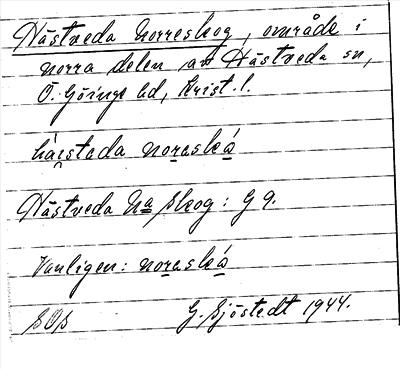 Hästveda Norreskog, område i
norra delen av Hästveda sn,
Ö. Göinge hd, Krist. l.
noraskå
Hästveda Na Skog: G 9.
Vanligen: noraskå
SOS G. Sjöstedt 1944.